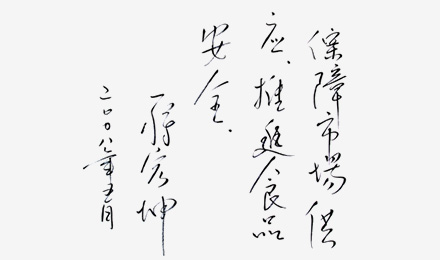 保障市場供
应、推進食品
安全.
蒋宏坤
二〇〇八年五月